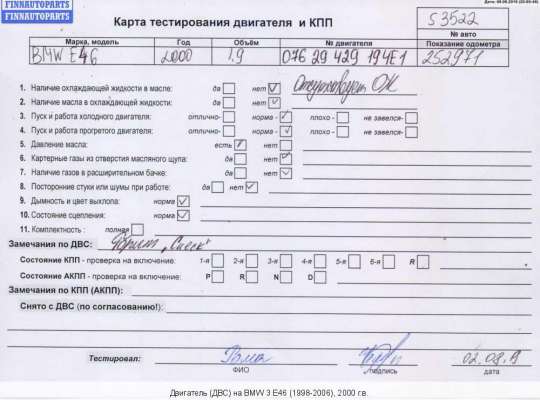 Дата: 08.08.2019
FINNAUTOPARTS
FINNAUTOPARTS
Карта тестирования двигателя и КПП
53522
№ авто
Марка, модель Год Объём № двигателя Показание одометра
BMW E46 2000 1.9 076 29 429 194E1 252971
1. Наличие охлаждающей жидкости в масле: да нет Отсутствует ОЖ
2. Наличие масла в охлаждающей жидкости: да нет
3. Пуск и работа холодного двигателя: отлично- норма - плохо- не завелся-
4. Пуск и работа прогретого двигателя: отлично- норма - плохо - не завелся-
5. Давление масла: есть нет
6. Картерные газы из отверстия масляного щупа: да нет
7. Наличие газов в расширительном бачке: да нет
8. Посторонние стуки или шумы при работе: да нет
9. Дымность и цвет выхлопа: норма
10. Состояние сцепления: норма
11. Комплектность : полная
Замечания по ДВС:
Состояние КПП - проверка на включение: 1-я 2-я 3-я 4-я 5-я 6-я R
Состояние АКПП - проверка на включение: P R N D
Замечания по КПП (АКПП):
Снято с ДВС (по согласованию!):
Тестировал: Рома 02.08.19
ФИО подпись дата
Двигатель (ДВС) на BMW 3 E46 (1998-2006), 2000 г.в.